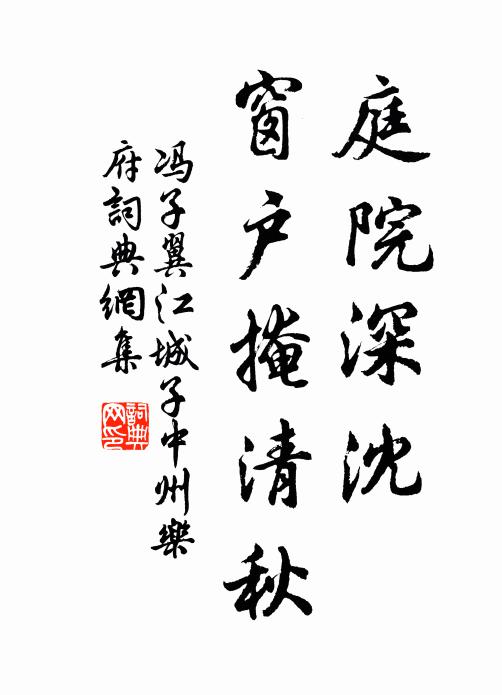 庭院深沈
窗户掩清秋
冯子翼江城子中州樂
府詞典網集
詞典
网印